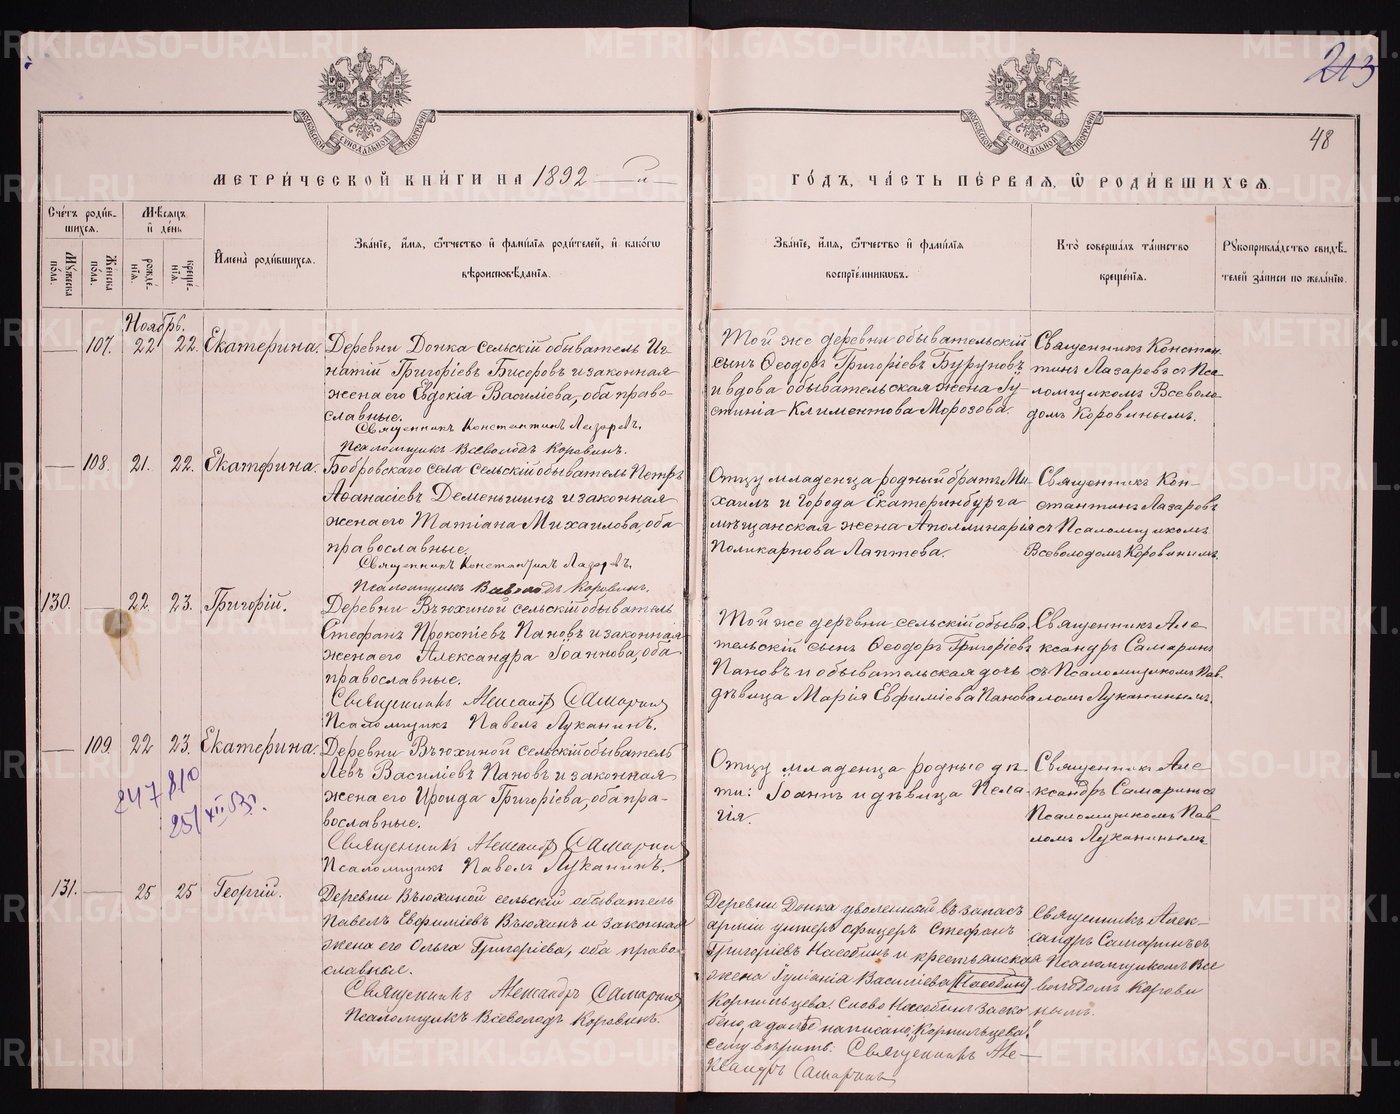 213
48
МОСКОВСКОЙ СѴНОДАЛЬНОЙ ТИПОГРАФІИ
МОСКОВСКОЙ СѴНОДАЛЬНОЙ ТИПОГРАФІИ
МЕТРИ́ЧЕСКОЙ КНИ́ГИ НА 1892 — й —
ГО́ДЪ, ЧА́СТЬ ПЕ́РВАЯ, Ѽ РОДИ́ВШИХСЯ.
Сче́тъ роди́в-
шихся.
Му́жеска по́ла.
Же́нска по́ла.
Мѣ́сяцъ
и де́нь
рожде́нія.
креще́нія.
И҆мена̀ роди́вшихся.
Зва́нїе, и҆́мя, ѻ҆́тчество и҆ фамѝлїя роди́телей, и҆ како́гѡ
вѣроисповѣ́данїя.
Зва́нїе, и҆́мя, ѻ҆́тчество и҆ фамѝлїя
воспрїе́мниковъ.
Кто̀ соверша́лъ та́инство
креще́нїя.
Рукоприкла́дство свидѣ́-
телей за́писи по жела́нїю.
Ноябрь.
— 107. 22 22. Екатерина.
Деревни Донка сельскій обыватель Иг-
натій Григоріевъ Бисеровъ и законная
жена его Евдокія Василіева, оба право-
славные.
Священникъ Константинъ Лазаревъ.
Псаломщикъ Всеволодъ Коровинъ.
Той же деревни обывательскій
сынъ Ѳеодоръ Григоріевъ Буруновъ
и вдова обывательская жена Іу-
стинія Климентова Морозова.
Священникъ Констан-
тинъ Лазаревъ съ Пса-
ломщикомъ Всеволо-
домъ Коровинымъ.
— 108. 21. 22. Екатерина.
Бобровскаго села сельскій обыватель Петръ
Аѳанасіевъ Деменьшинъ и законная
жена его Татіана Михаилова, оба
православные.
Священникъ Константинъ Лазаревъ.
Псаломщикъ Всеволодъ Коровинъ.
Отцу младенца родный братъ Ми-
хаилъ и города Екатеринбурга
мѣщанская жена Аполлинарія
Поликарпова Лаптева.
Священникъ Кон-
стантинъ Лазаревъ
съ Псаломщикомъ
Всеволодомъ Коровинымъ.
130. — 22 23. Григорій.
Деревни Вьюхиной сельскій обыватель
Стефанъ Прокопіевъ Пановъ и законная
жена его Александра Іоаннова, оба
православные.
Священникъ Александръ Самаринъ
Псаломщикъ Павелъ Луканинъ.
Той же деревни, сельскій обыва-
тельскій сынъ Ѳеодоръ Григоріевъ
Пановъ и обывательская дочь
дѣвица Марія Евфиміева Панова
Священникъ Але-
ксандръ Самаринъ
съ Псаломщикомъ Пав-
ломъ Луканинымъ.
— 109. 22 23. Екатерина.
Деревни Вьюхиной сельскій обыватель
Левъ Василіевъ Пановъ и законная
жена его Ироида Григоріева, оба пра-
вославные.
Священникъ Александръ Самаринъ
Псаломщикъ Павелъ Луканинъ.
Отцу младенца родные дѣ-
ти: Іоаннъ и дѣвица Пела-
гія.
Священникъ Але-
ксандръ Самаринъ съ
Псаломщикомъ Пав-
ломъ Луканинымъ
131. — 25 25 Георгій.
Деревни Вьюхиной сельскій обыватель
Павелъ Евфиміевъ Вьюхинъ и законная
жена его Ольга Григоріева, оба право-
славные.
Священникъ Александръ Самаринъ
Псаломщикъ Всеволодъ Коровинъ.
Деревни Донка уволенный въ запасъ
арміи унтеръ офицеръ Стефанъ
Григоріевъ Насобинъ и крестьянская
жена Іуліанія Василіева (Насобин)
Корнильцева. Слово Насобин заско-
блено, а далѣе написано „Корнильцева"
сему вѣрить: Священникъ Але-
ксандръ Самаринъ
Священникъ Алек-
сандръ Самаринъ съ
Псаломщикомъ Все-
володомъ Корови-
нымъ.
METRIKI.GASO-URAL.RU